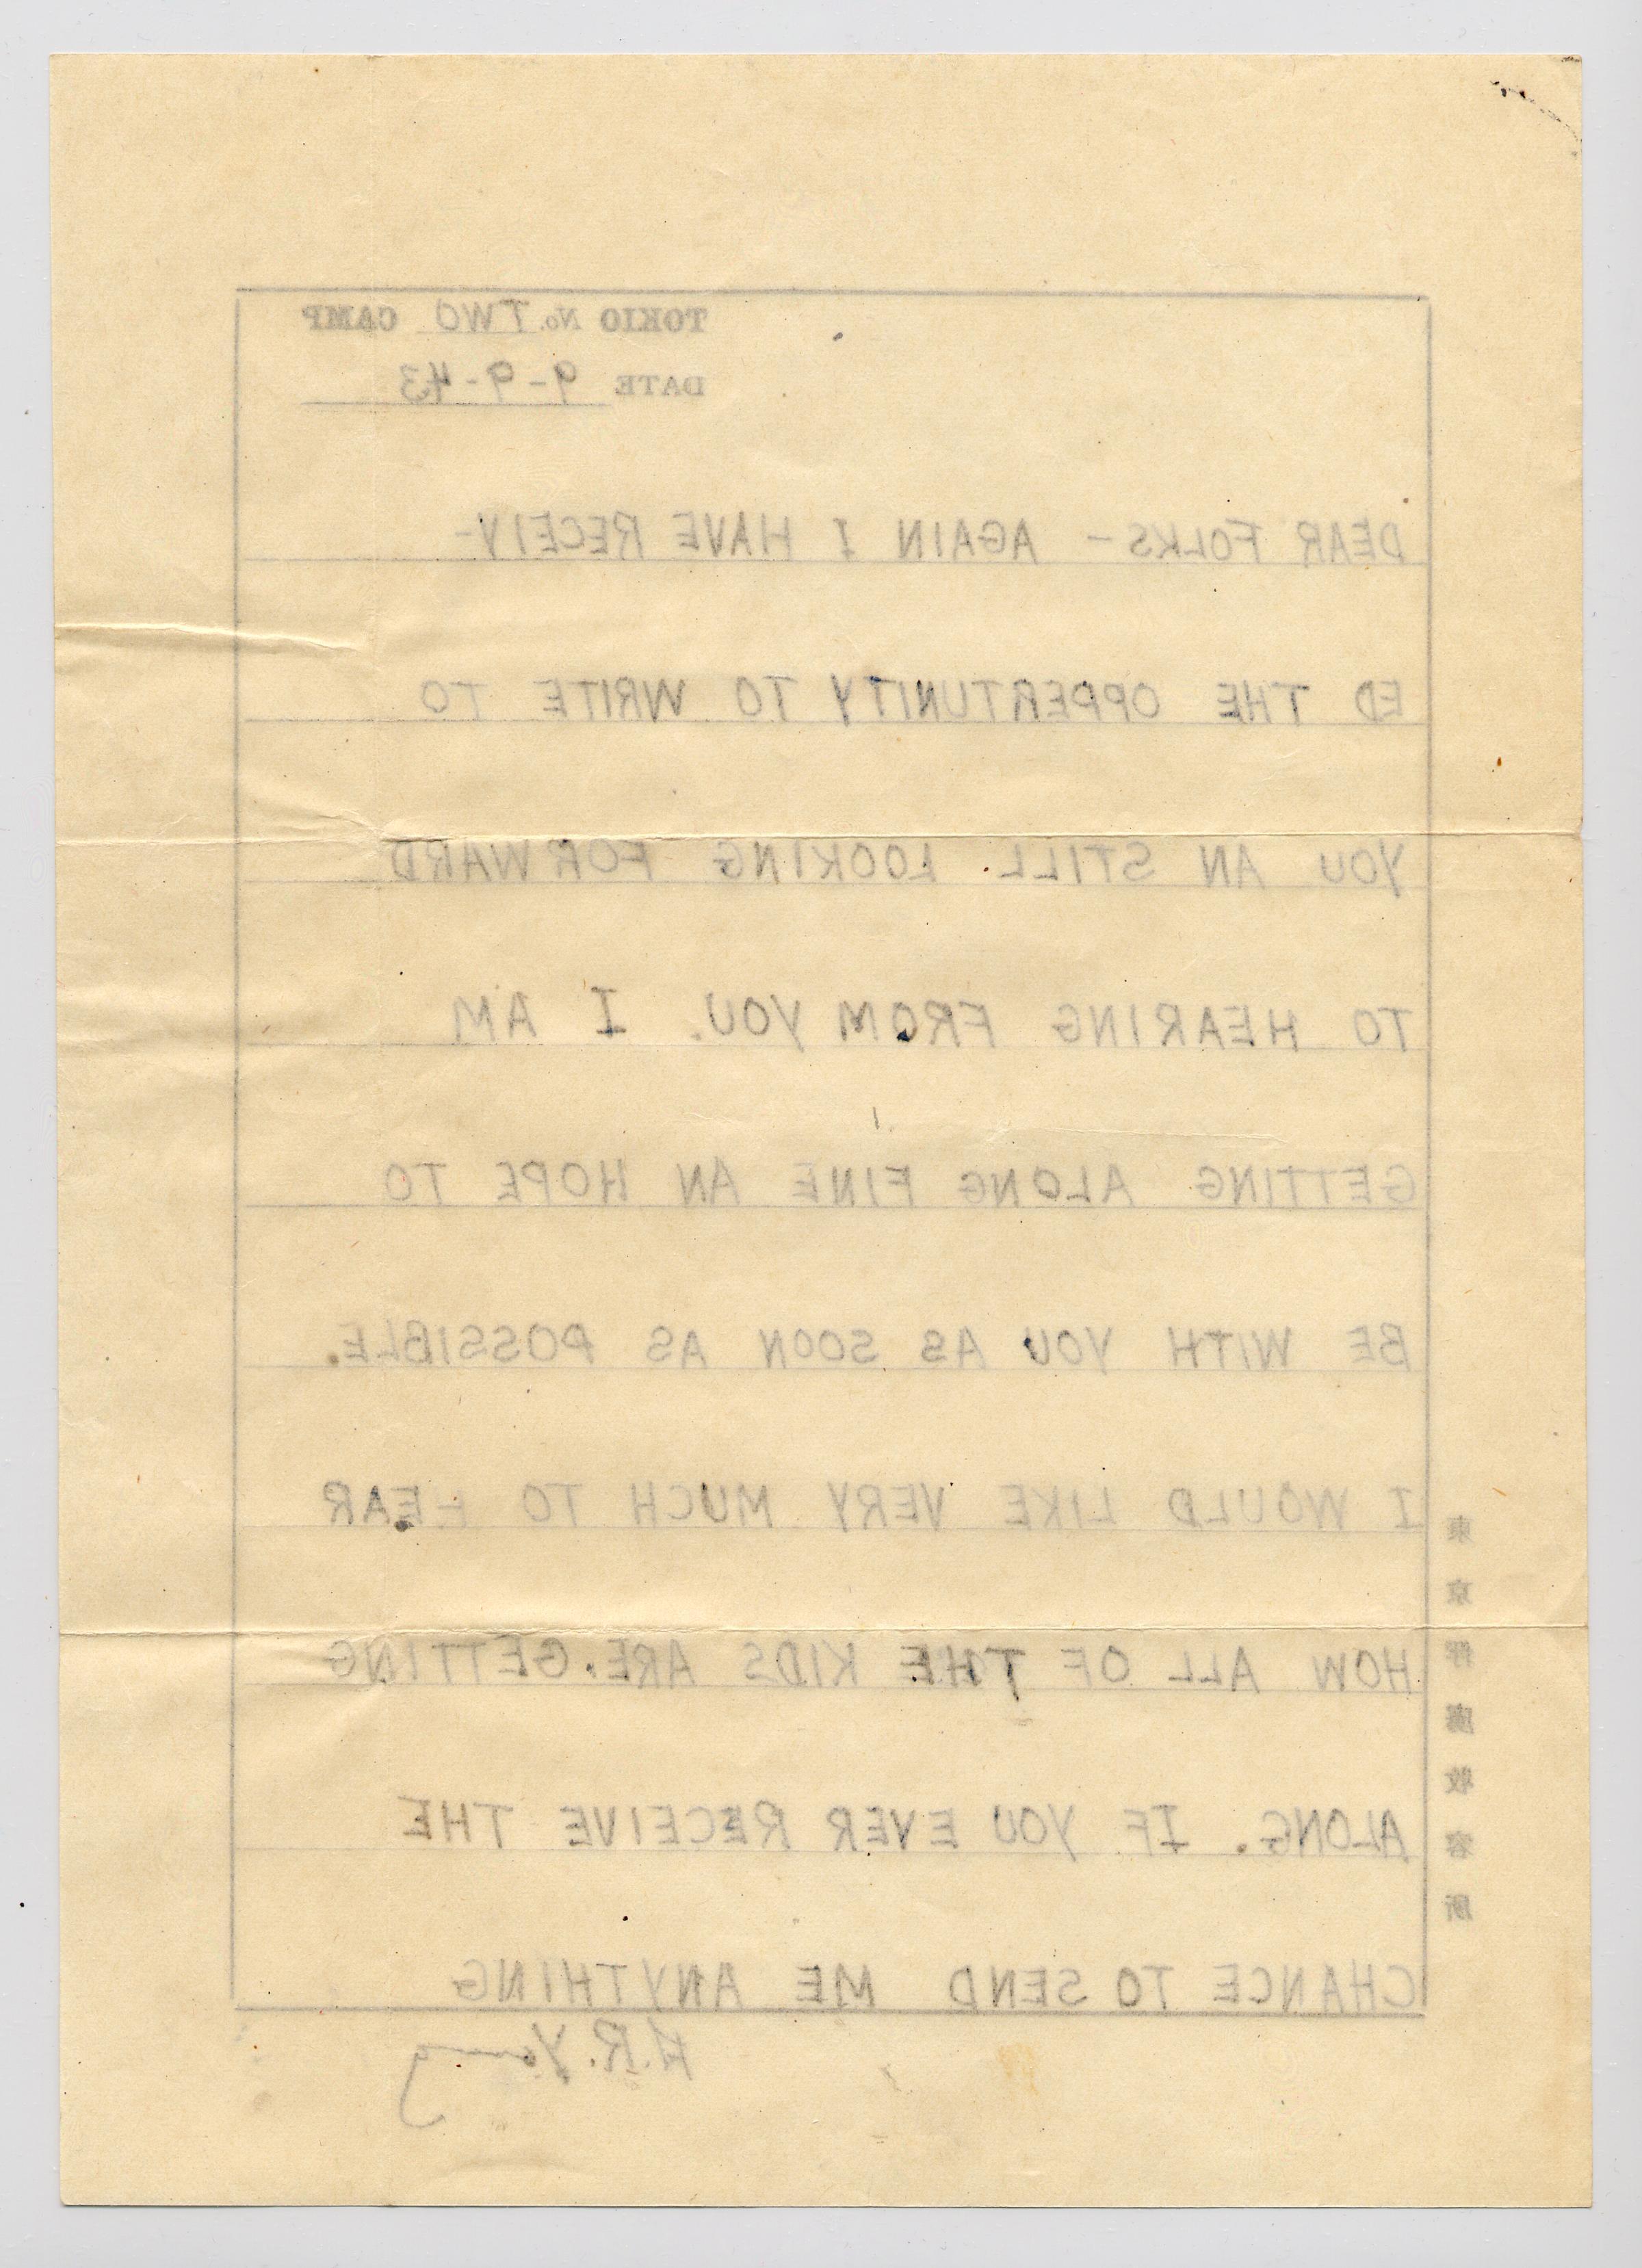 TOKIO No. TWO CAMP
DATE 9-9-43
DEAR FOLKS - AGAIN I HAVE RECEIV-
ED THE OPPERTUNITY TO WRITE TO
YOU AN STILL LOOKING FORWARD
TO HEARING FROM YOU. I AM
GETTING ALONG FINE AN HOPE TO
BE WITH YOU AS SOON AS POSSIBLE.
I WOULD LIKE VERY MUCH TO HEAR
HOW ALL OF THE KIDS ARE GETTING
ALONG. IF YOU EVER RECEIVE THE
CHANCE TO SEND ME ANYTHING
H.R. Young
東京俘虜收容所